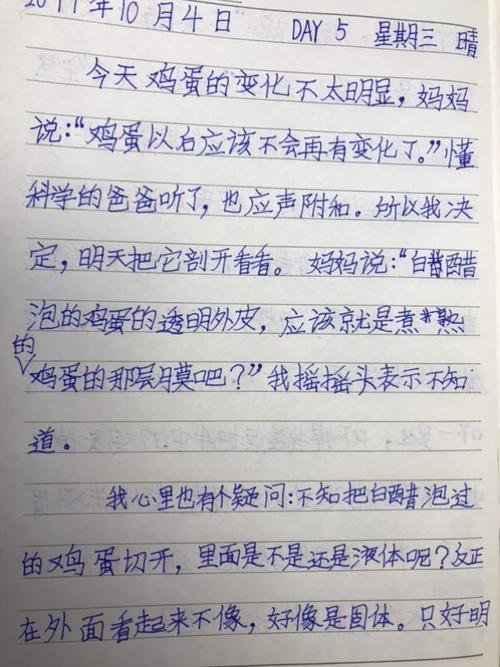 2017年10月4日 DAY 5 星期三 晴
今天鸡蛋的变化不太明显，妈妈
说：“鸡蛋以后应该不会再有变化了。”懂
科学的爸爸听了，也应声附和。所以我决
定，明天把它剖开看看。妈妈说：“白醋
泡的鸡蛋的透明外皮，应该就是煮熟
的
鸡蛋的那层膜吧？”我摇摇头表示不知
道。
我心里也有个疑问：不知把白醋泡过
的鸡蛋切开，里面是不是还是液体呢？反正
在外面看起来不像，好像是固体。只好明